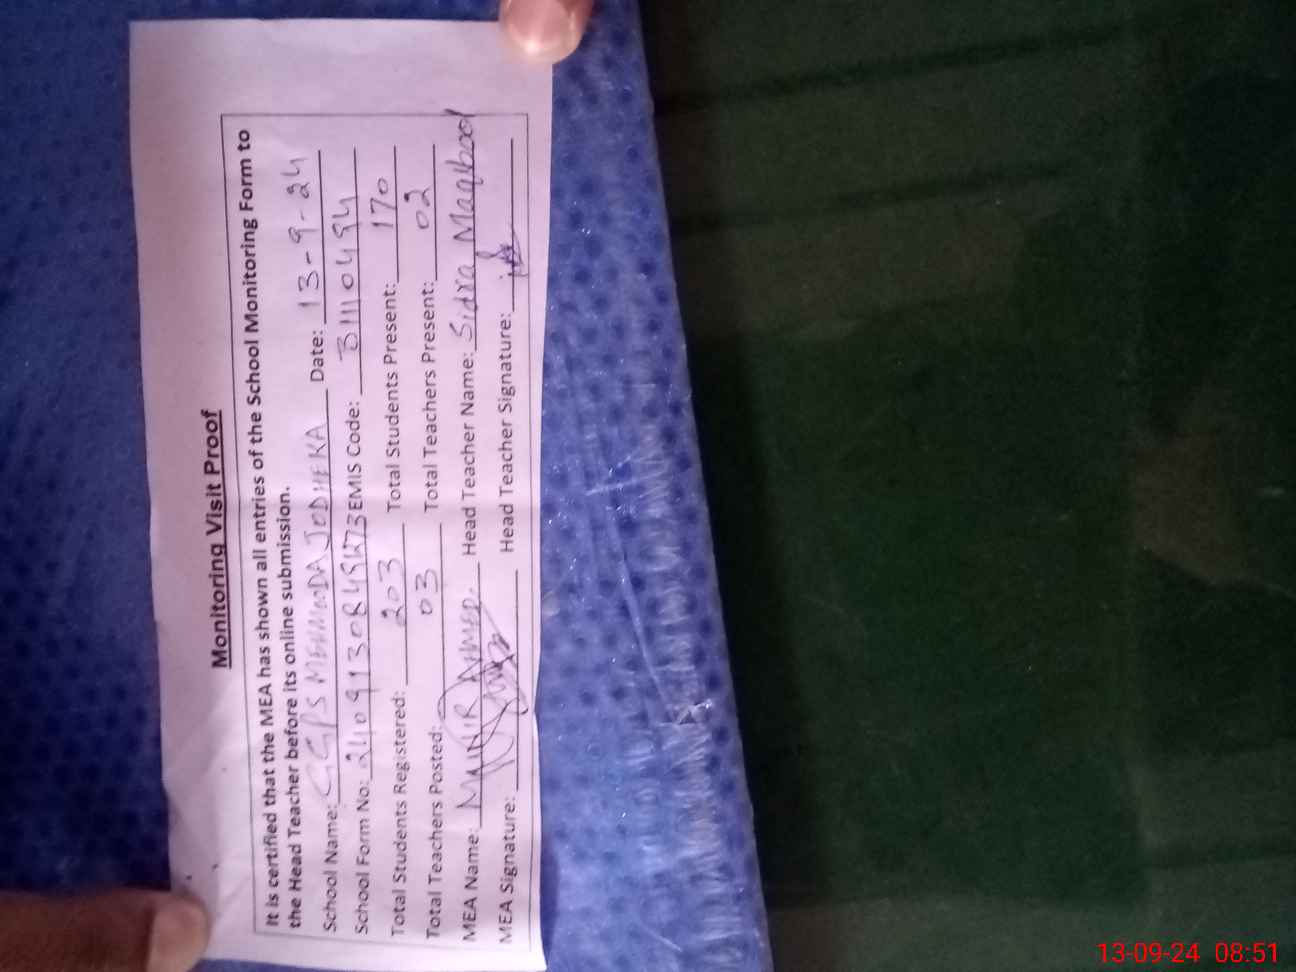 Monitoring Visit Proof
It is certified that the MEA has shown all entries of the School Monitoring Form to
the Head Teacher before its online submission.
School Name: GGPS MEHMOODA JODHEKA Date: 13-9-24
School Form No: EMIS Code: 31110494
Total Students Registered: 203 Total Students Present: 170
Total Teachers Posted: 03 Total Teachers Present: 02
MEA Name: MUNIR AHMED. Head Teacher Name: Sidra Maqbool
MEA Signature: Head Teacher Signature:
13-09-24 08:51